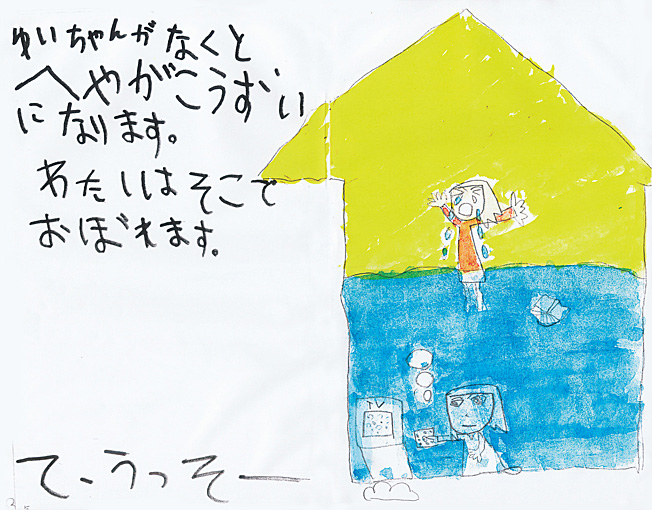 ゆいちゃんがなくと
へやがこうずい
になります。
わたしはそこで
おぼれます。
て、うっそー
TV